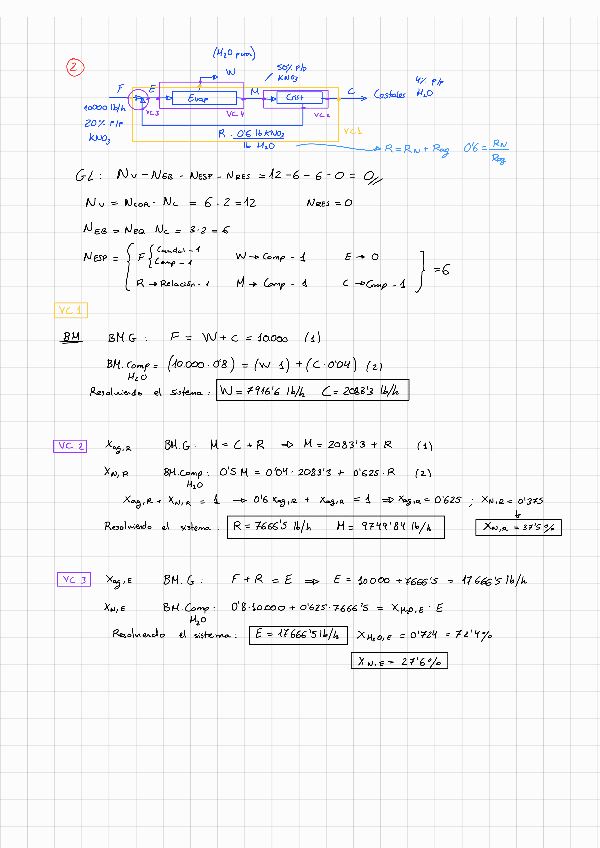 2
(H2O pura)
W
F E Evap M 50% p/p KNO3 Crist C Costales 4% p/p H2O
10000 lb/h VC3 VC4 VC2
20% p/p KNO3 VC1
R 0'6 lb KNO3 / lb H2O → R = RN + Rag 0'6 = RN / Rag
GL: NV - NEB - NESP - NRES = 12 - 6 - 6 - 0 = 0//
NV = NCOR · NC = 6 · 2 = 12 NRES = 0
NEB = NEQ NC = 3·2 = 6
NESP = { F { Caudal - 1 Comp - 1 W → Comp - 1 E → 0
R → Relación - 1 M → Comp - 1 C → Comp - 1 } = 6
VC 1
BM BMG: F = W + C = 10.000 (1)
BM.Comp H2O = (10.000 · 0'8) = (W 1) + (C · 0'04) (2)
Resolviendo el sistema: W = 7916'6 lb/h C = 2083'3 lb/h
VC 2 Xag,R BM.G: M = C + R ⇒ M = 2083'3 + R (1)
XN,R BM.Comp H2O: 0'5 M = 0'04 · 2083'3 + 0'625 · R (2)
Xag,R + XN,R = 1 → 0'6 Xag,R + Xag,R = 1 ⇒ Xag,R = 0'625 ; XN,R = 0'375
Resolviendo el sistema: R = 7666'5 lb/h M = 9749'84 lb/h XN,R = 37'5 %
VC 3 Xag,E BM.G: F + R = E ⇒ E = 10000 + 7666'5 = 17666'5 lb/h
XN,E BM.Comp H2O: 0'8·10000 + 0'625·7666'5 = XH2O,E · E
Resolviendo el sistema: E = 17666'5 lb/h XH2O,E = 0'724 = 72'4%
XN,E = 27'6%